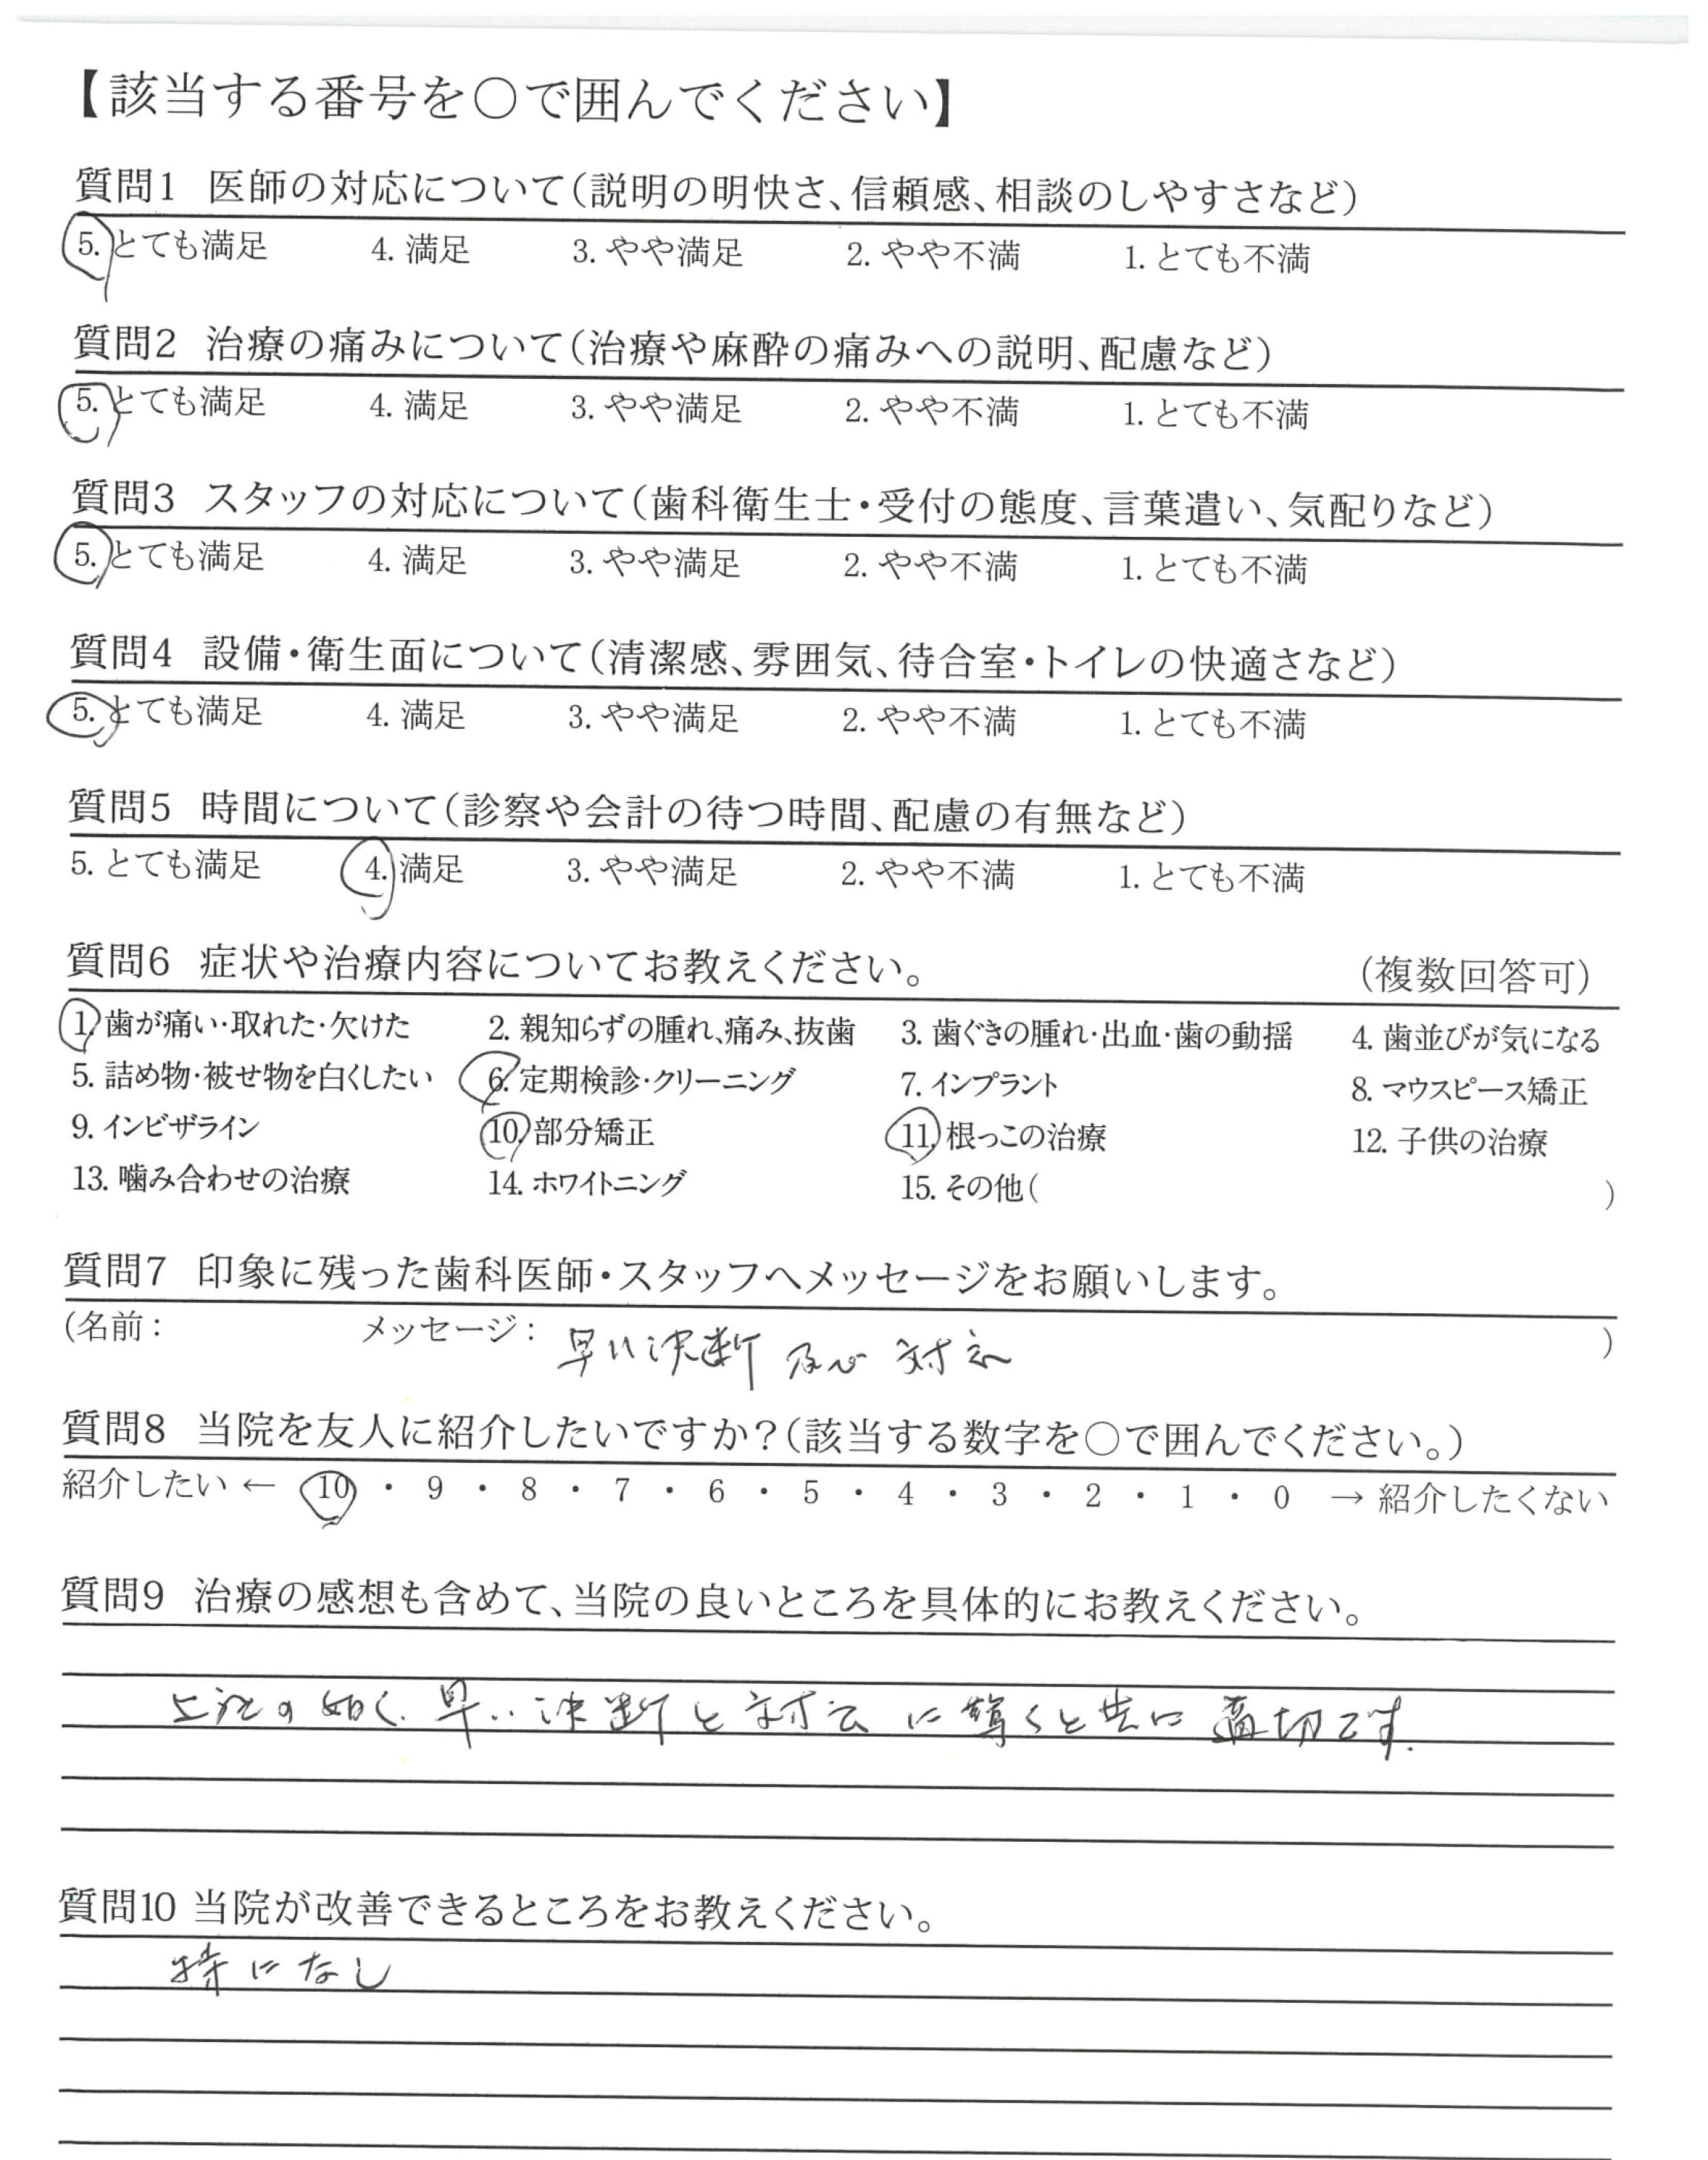 【該当する番号を○で囲んでください】
質問1 医師の対応について(説明の明快さ、信頼感、相談のしやすさなど)
5. とても満足 4. 満足 3. やや満足 2. やや不満 1. とても不満
質問2 治療の痛みについて(治療や麻酔の痛みへの説明、配慮など)
5. とても満足 4. 満足 3. やや満足 2. やや不満 1. とても不満
質問3 スタッフの対応について(歯科衛生士・受付の態度、言葉遣い、気配りなど)
5. とても満足 4. 満足 3. やや満足 2. やや不満 1. とても不満
質問4 設備・衛生面について(清潔感、雰囲気、待合室・トイレの快適さなど)
5. とても満足 4. 満足 3. やや満足 2. やや不満 1. とても不満
質問5 時間について(診察や会計の待つ時間、配慮の有無など)
5. とても満足 4. 満足 3. やや満足 2. やや不満 1. とても不満
質問6 症状や治療内容についてお教えください。 (複数回答可)
1. 歯が痛い・取れた・欠けた 2. 親知らずの腫れ、痛み、抜歯 3. 歯ぐきの腫れ・出血・歯の動揺 4. 歯並びが気になる
5. 詰め物・被せ物を白くしたい 6. 定期検診・クリーニング 7. インプラント 8. マウスピース矯正
9. インビザライン 10. 部分矯正 11. 根っこの治療 12. 子供の治療
13. 噛み合わせの治療 14. ホワイトニング 15. その他( )
質問7 印象に残った歯科医師・スタッフへメッセージをお願いします。
(名前: メッセージ: 早い決断 及び 対応 )
質問8 当院を友人に紹介したいですか?(該当する数字を○で囲んでください。)
紹介したい ← 10 ・ 9 ・ 8 ・ 7 ・ 6 ・ 5 ・ 4 ・ 3 ・ 2 ・ 1 ・ 0 → 紹介したくない
質問9 治療の感想も含めて、当院の良いところを具体的にお教えください。
上記の如く、早い決断と対応に驚くと共に適切です.
質問10 当院が改善できるところをお教えください。
特になし